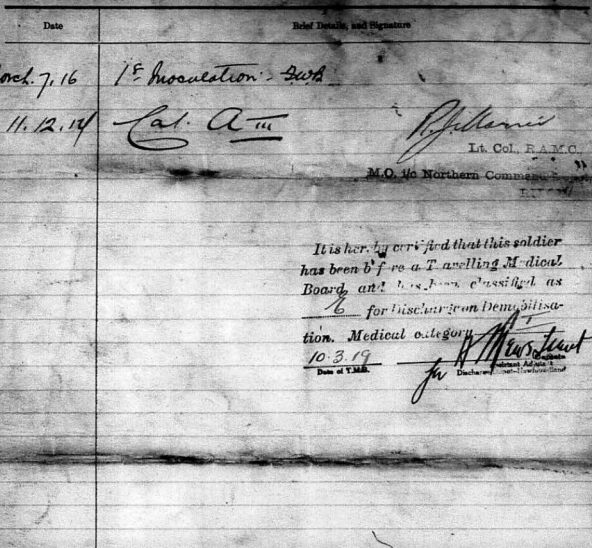 Date Brief Details, and Signature
March. 7, 16 1st Inoculation
11.12.17 Cat. A III
Lt. Col. R.A.M.C.
M.O. i/c Northern Command
It is hereby certified that this soldier
has been before a Travelling Medical
Board and has been classified as
for Discharge on Demobilisa-
tion. Medical category I
10.3.19
Date of T.M.B.
for